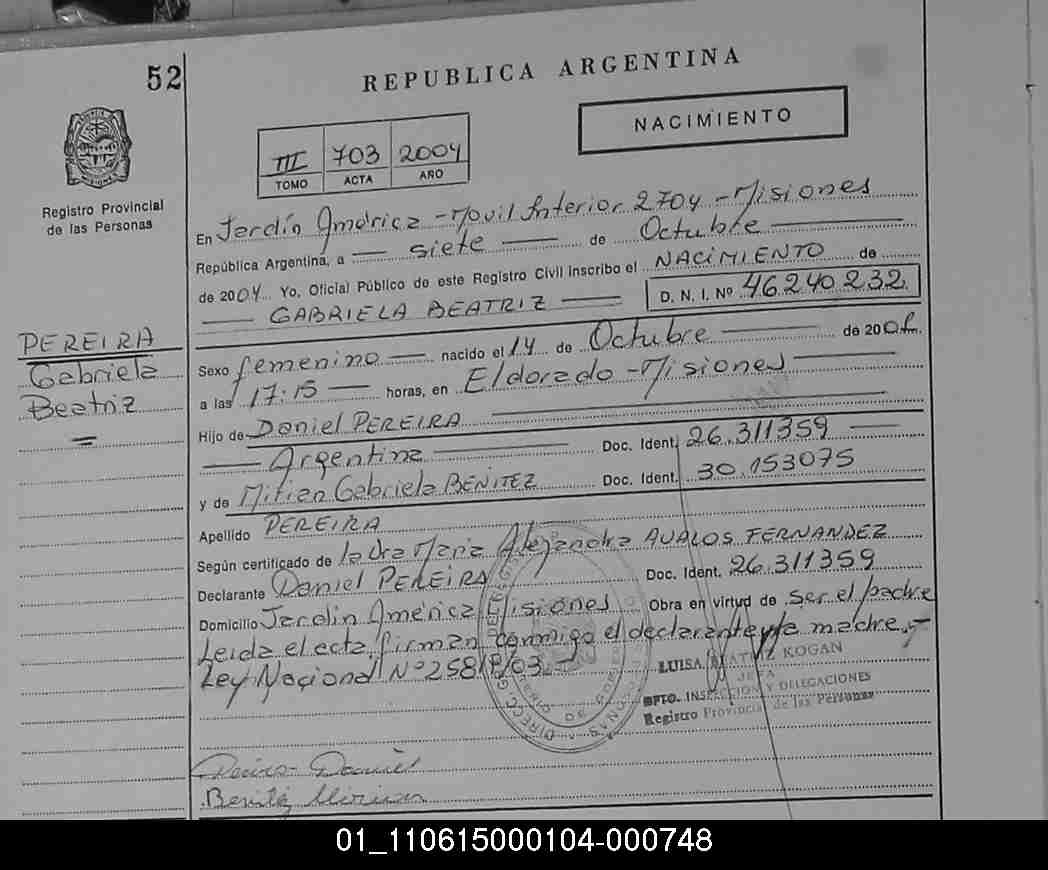 52
REPUBLICA ARGENTINA
NACIMIENTO
III 703 2004
TOMO ACTA AÑO
Registro Provincial
de las Personas
En Jardín América - Movil Interior 2704 - Misiones
República Argentina, a siete de Octubre
de 2004 Yo, Oficial Público de este Registro Civil inscribo el NACIMIENTO de
GABRIELA BEATRIZ D. N. I. Nº 46240232
PEREIRA
Gabriela
Beatriz
Sexo femenino nacido el 14 de Octubre de 200
a las 17:15 horas, en Eldorado - Misiones
Hijo de Daniel PEREIRA
Argentina Doc. Ident. 26.311359
y de Mirian Gabriela BENITEZ Doc. Ident. 30.153075
Apellido PEREIRA
Según certificado de la Dra Maria Alejandra AVALOS FERNANDEZ
Declarante Daniel PEREIRA Doc. Ident. 26.311359
Domicilio Jardín América Misiones Obra en virtud de ser el padre
Leida el acta, firman conmigo el declarante y la madre.-
Ley Nacional Nº 25818/03.-
LUISA BEATRIZ KOGAN
JEFA
DPTO. INSPECCION Y DELEGACIONES
Registro Provincial de las Personas
Daniel
Benitez Mirian
01_110615000104-000748